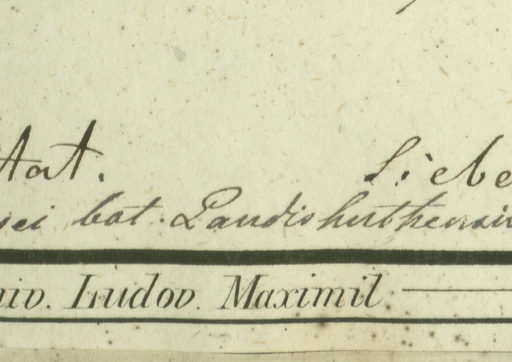 tat. Siebe
sei bot. Landishuthensi
niv. Ludov. Maximil